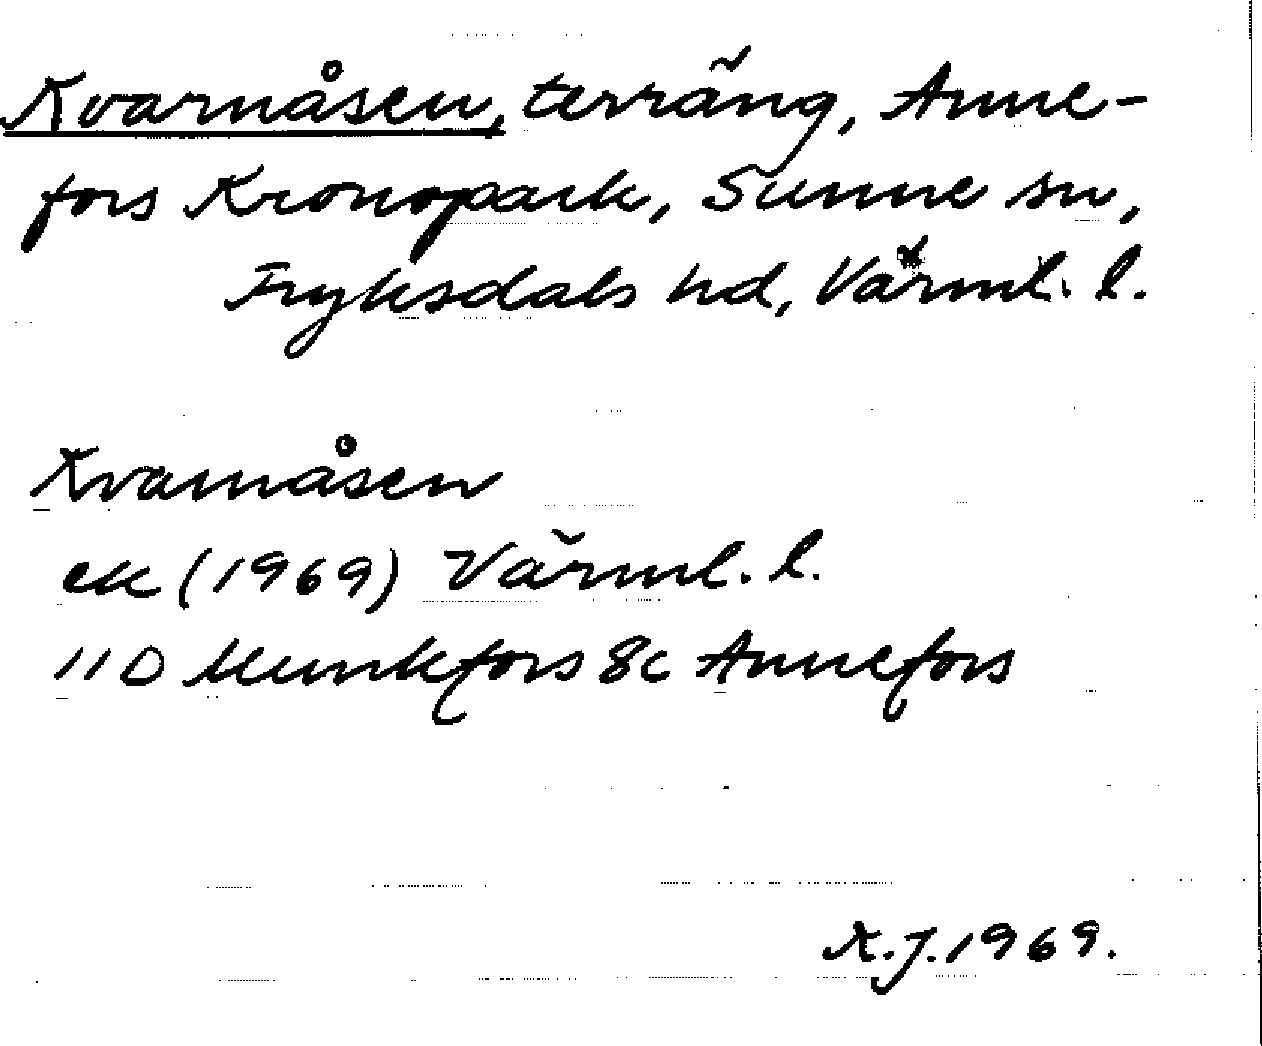 Kvarnåsen, terräng, Anne-
fors Kronopark, Sunne sn,
Fryksdals hd, Värml. l.
Kvarnåsen
ek (1969) Värml. l.
11D Munkfors 8c Annefors
K.J. 1969.